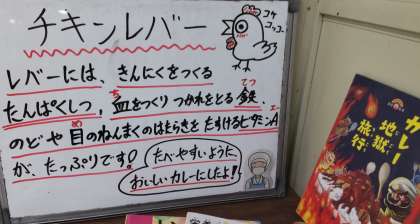 チキンレバー
コケ
コッコー
レバーには、きんにくをつくる
たんぱくしつ，血をつくり つかれをとる鉄、
ち
てつ
のどや目のねんまくのはたらきをたすけるビタミンA
め
エー
が、たっぷりです!
たべやすいように
おいしいカレーにしたよ!
カレー
地獄
旅行